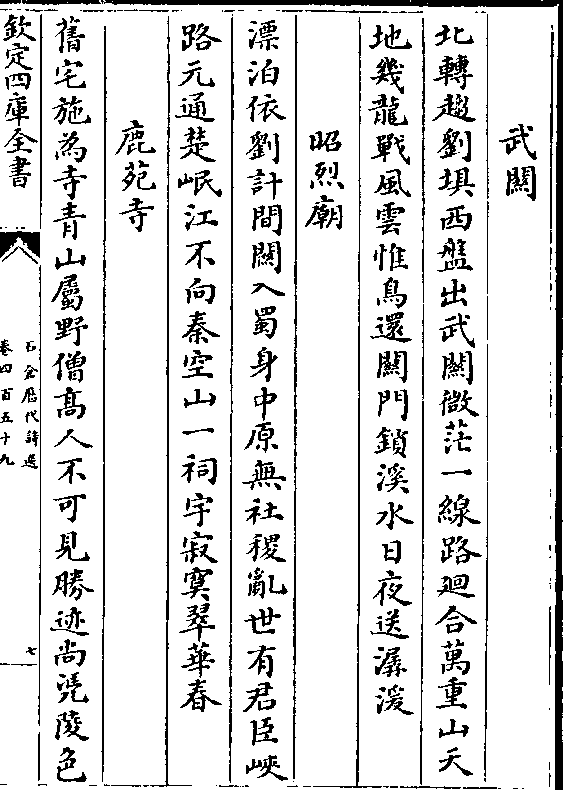 武闗
北轉趨劉埧西盤出武闗微茫一線路廻合萬重山天
地幾龍戰風雲惟鳥還闗門鎖溪水日夜送潺湲
昭烈廟
漂泊依劉計間闗入蜀身中原無社稷亂世有君臣峽
路元通楚岷江不向秦空山一祠宇寂寞翠華春
鹿苑寺
舊宅施為寺青山屬野僧髙人不可見勝迹尚凴陵色
欽定四庫全書
石倉歴代詩選
卷四百五十九
七